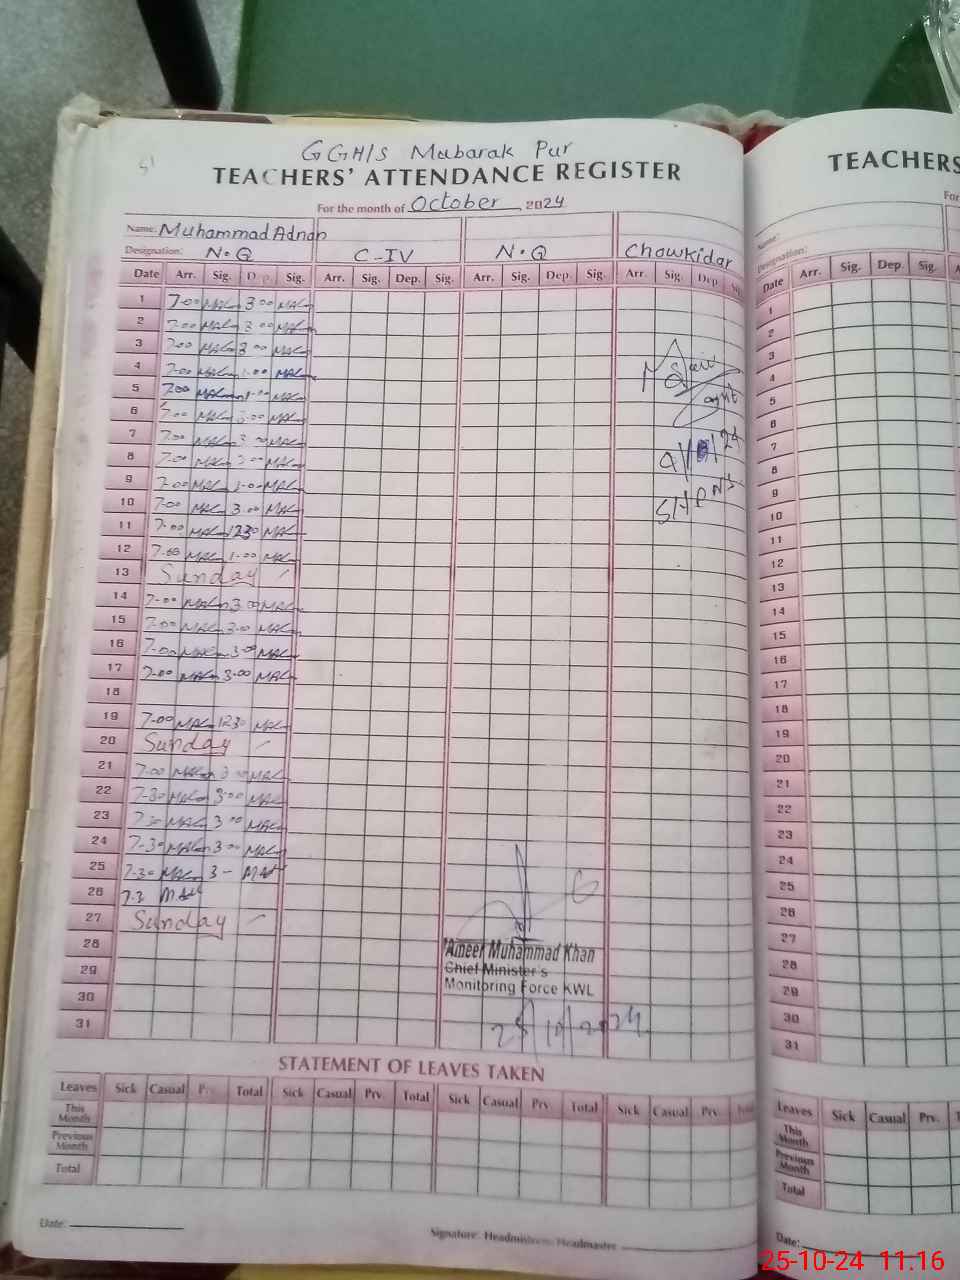 GGH/S Mubarak Pur
TEACHERS' ATTENDANCE REGISTER
For the month of October 2024
Name: Muhammad Adnan
Designation: N.Q C-IV N.Q Chowkidar
Date Arr. Sig. Dep. Sig. Arr. Sig. Dep. Sig. Arr. Sig. Dep. Sig. Arr. Sig. Dep. Sig.
1 7-00 3-00
2 7-00 3-00
3 7-00 3-00
4 7-00 1-00
5 7-00 1-00
6 7-00 3-00
7 7-00 3-00
8 7-00 3-00
9 7-00 3-00
10 7-00 3-00
11 7-00 1230
12 7-00 1-00
13 Sunday
14 7-00 3-00
15 7-00 3-00
16 7-00 3-00
17 7-00 3-00
18
19 7-00 1230
20 Sunday
21 7-00 3-00
22 7-30 3-00
23 7-30 3-00
24 7-30 3-00
25 7-30 3-
26 7-3
27 Sunday
28
29
30
31
Ameer Muhammad Khan
Chief Minister's
Monitoring Force KWL
25/10/2024
STATEMENT OF LEAVES TAKEN
Leaves Sick Casual Prv. Total Sick Casual Prv. Total Sick Casual Prv. Total Sick Casual Prv. Total
This Month
Previous Month
Total
Date:
Signature: Headmistress/Headmaster
TEACHERS
Name:
Designation:
Date Arr. Sig. Dep. Sig.
1
2
3
4
5
6
7
8
9
10
11
12
13
14
15
16
17
18
19
20
21
22
23
24
25
26
27
28
29
30
31
Leaves Sick Casual Prv.
This Month
Previous Month
Total
Date:
25-10-24 11.16